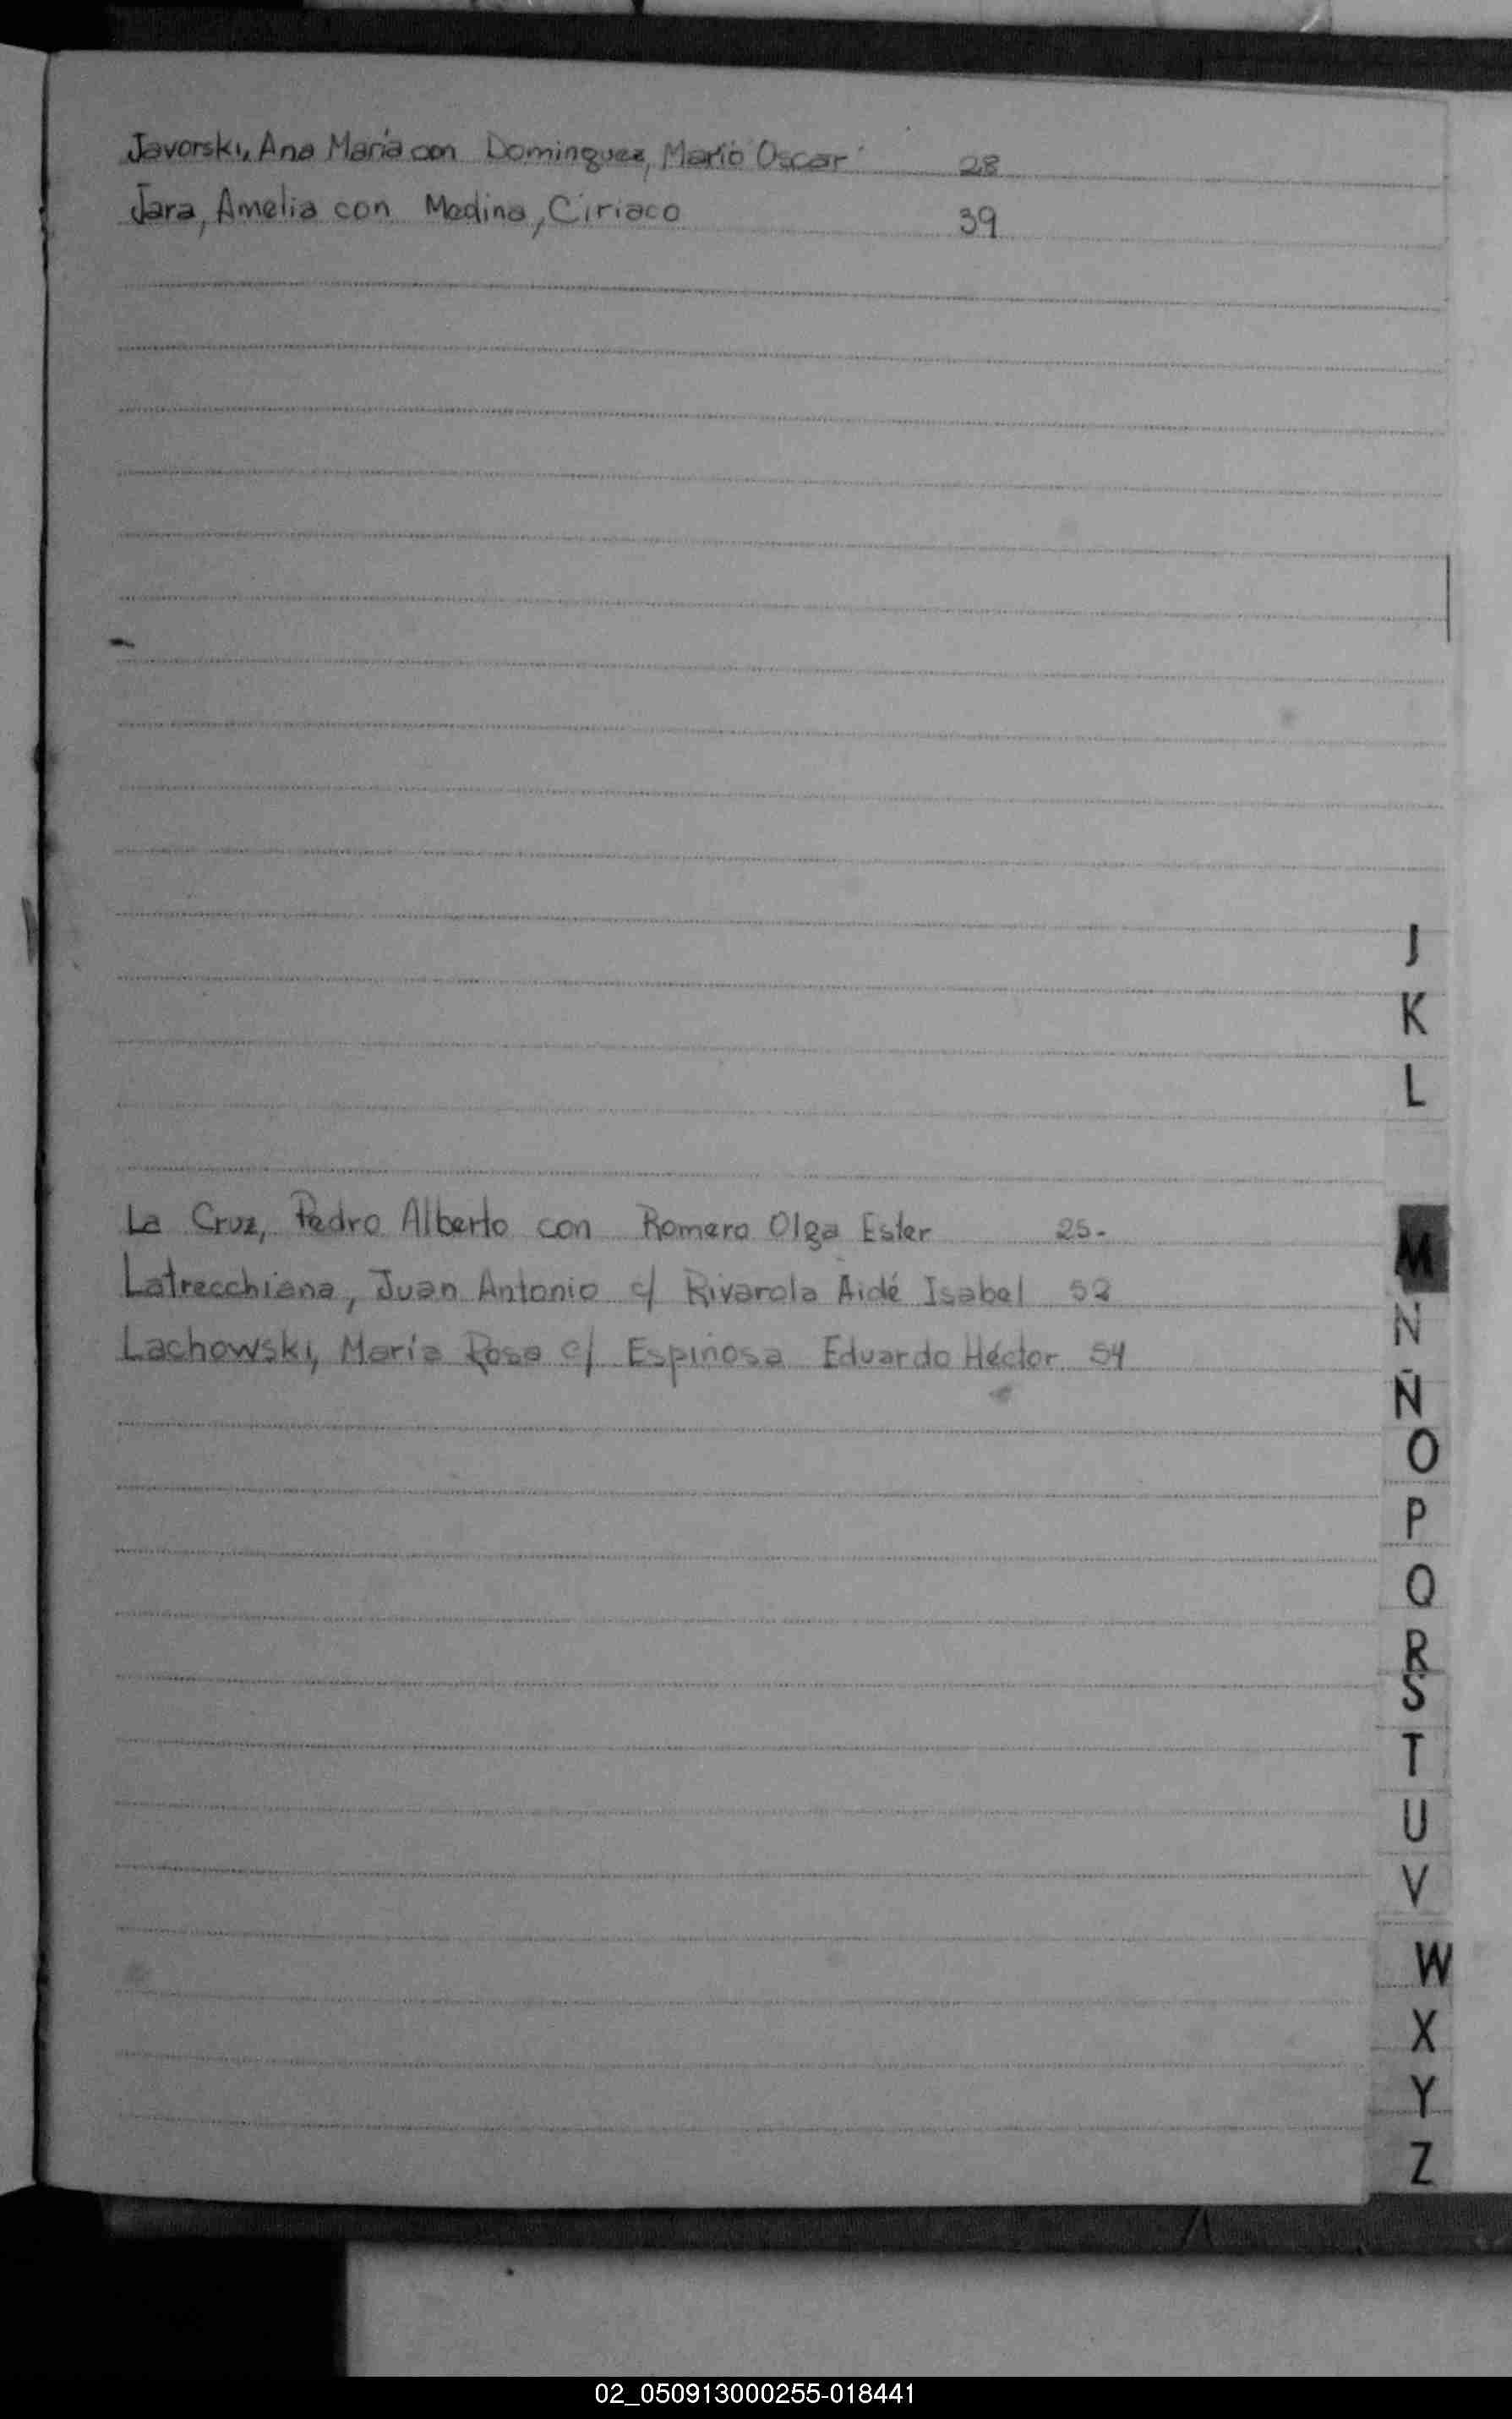 Javorski, Ana María con Dominguez, Mario Oscar 28
Jara, Amelia con Medina, Ciriaco 39
J
K
L
La Cruz, Pedro Alberto con Romero Olga Ester 25.-
Latrecchiana, Juan Antonio c/ Rivarola Aidé Isabel 52
Lachowski, María Rosa c/ Espinosa Eduardo Héctor 54
M
N
Ñ
O
P
Q
R
S
T
U
V
W
X
Y
Z
02_050913000255-018441